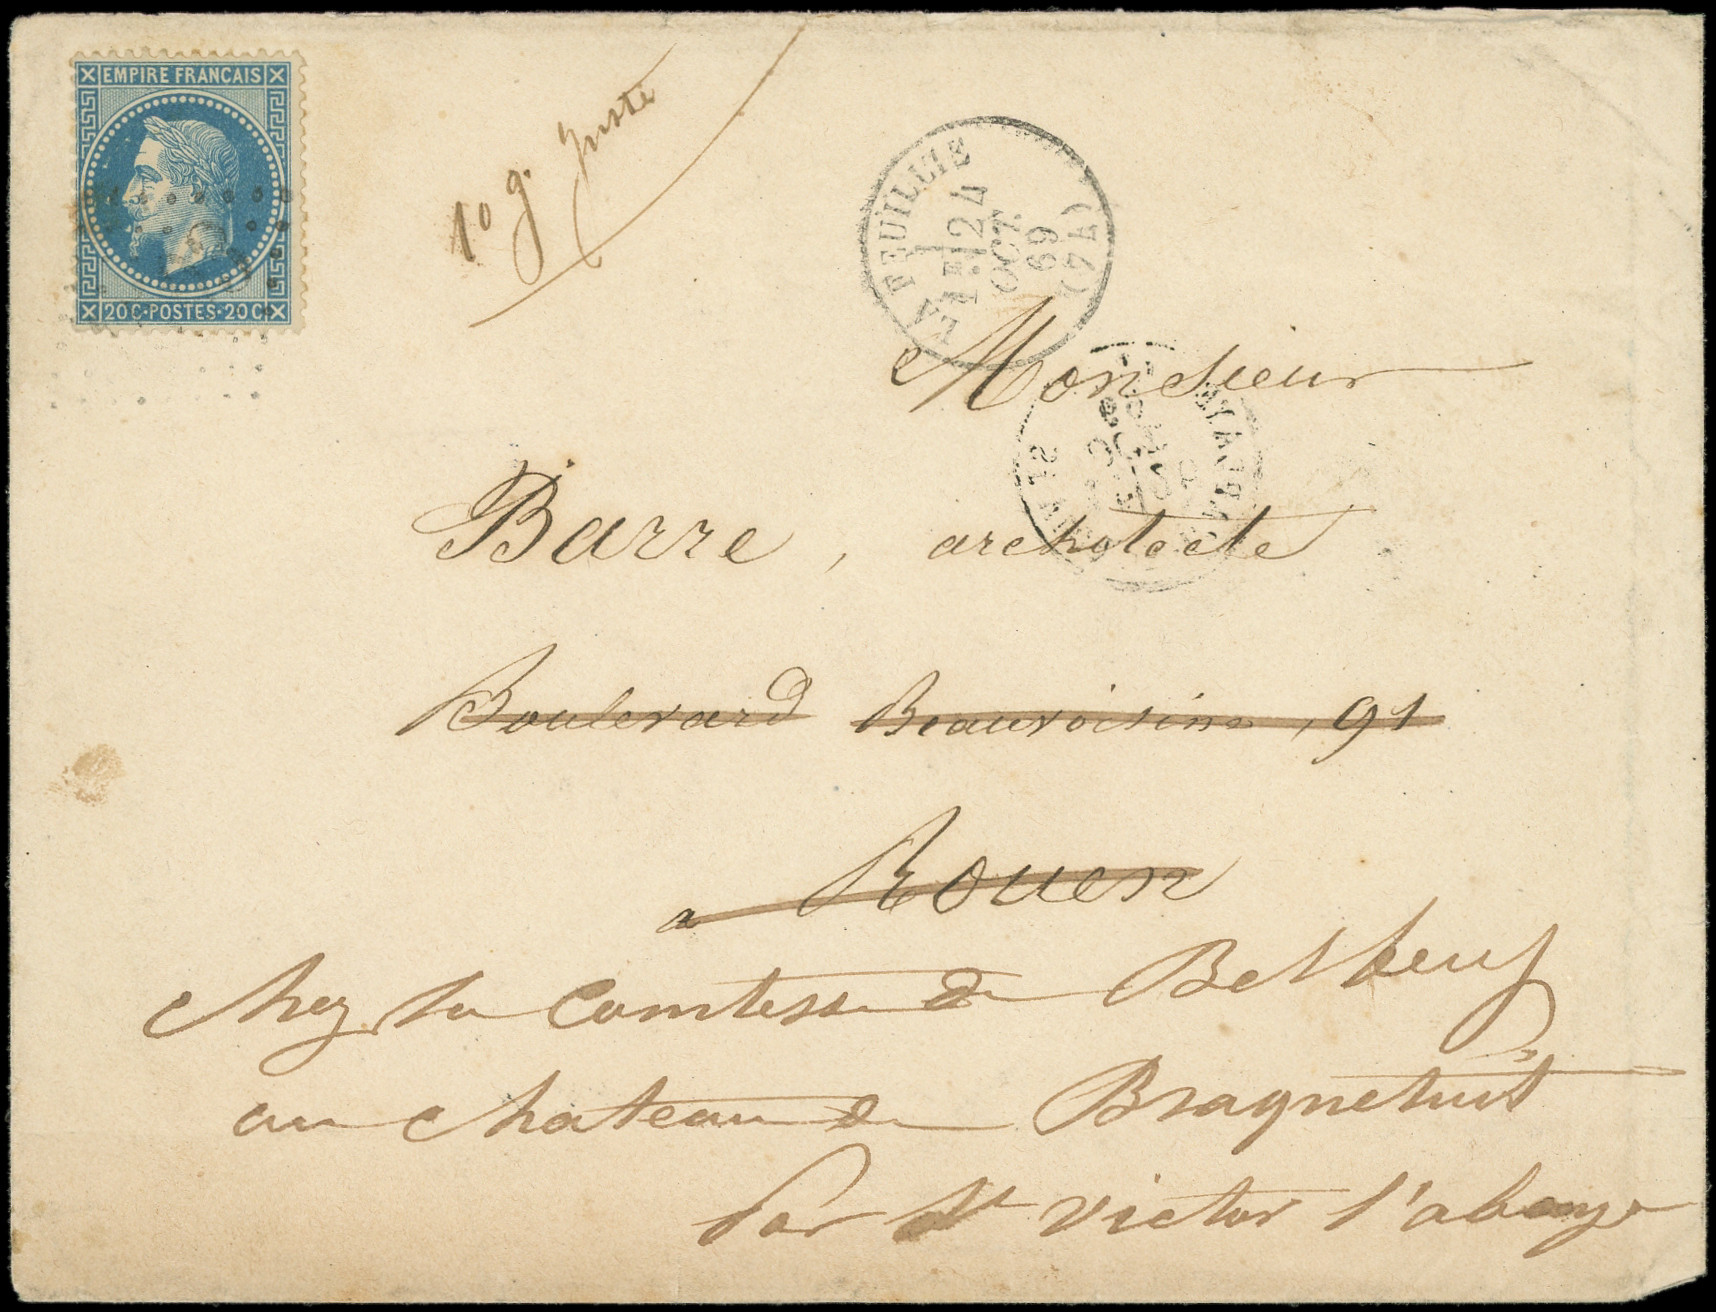 EMPIRE FRANCAIS
20 C · POSTES · 20 C
10 g. juste
LA FEUILLIE
1E
24
OCT.
69
(74)
Monsieur
Barre, architecte
Boulevard Beauvoisine, 91
a Rouen
chez la Comtesse de Belbeuf
au chateau de Bragnetuit
Par St Victor l'abbaye